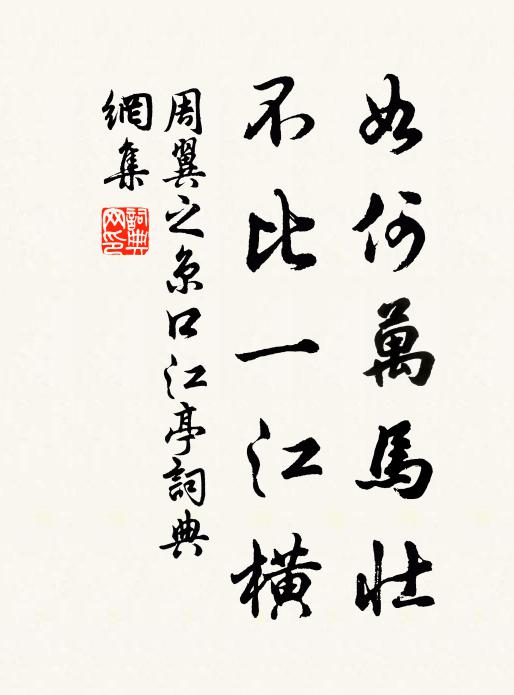 如何萬馬壯
不比一江橫
周翼之京口江亭詞典
網集
詞典網印